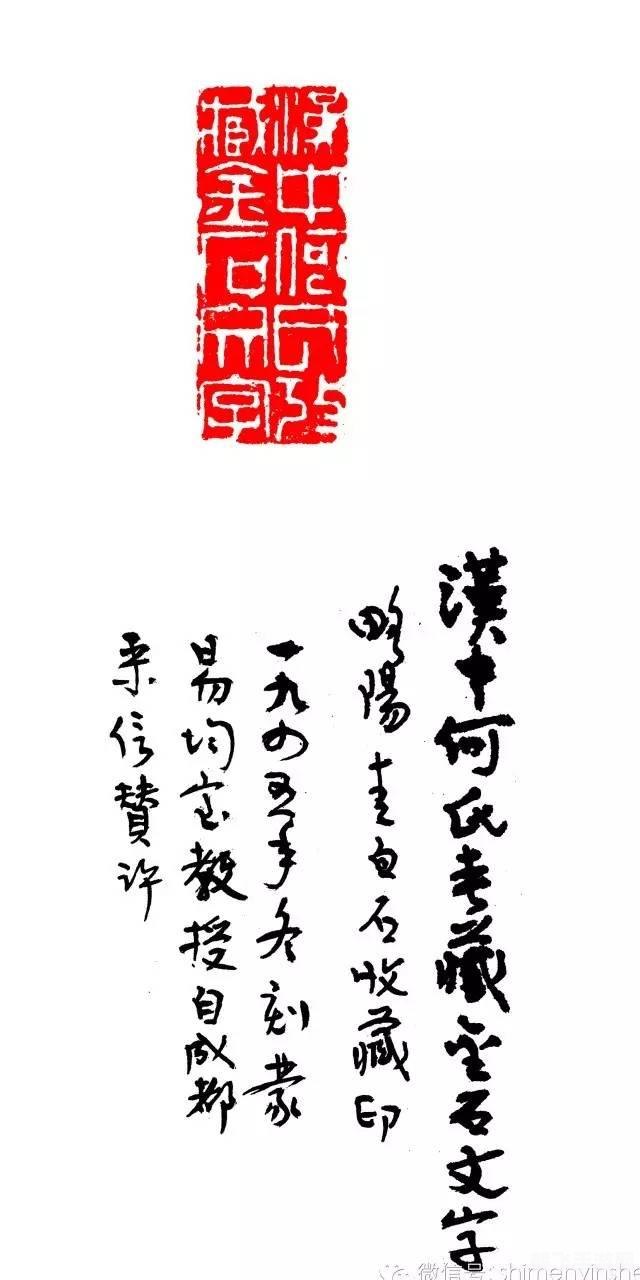 漢中何氏考
藏金石文字
漢中何氏考藏金石文字
略陽青白石收藏印
一九四五年冬刻蒙
易均室教授自成都
来信贊許
微信号: shimenyinshe